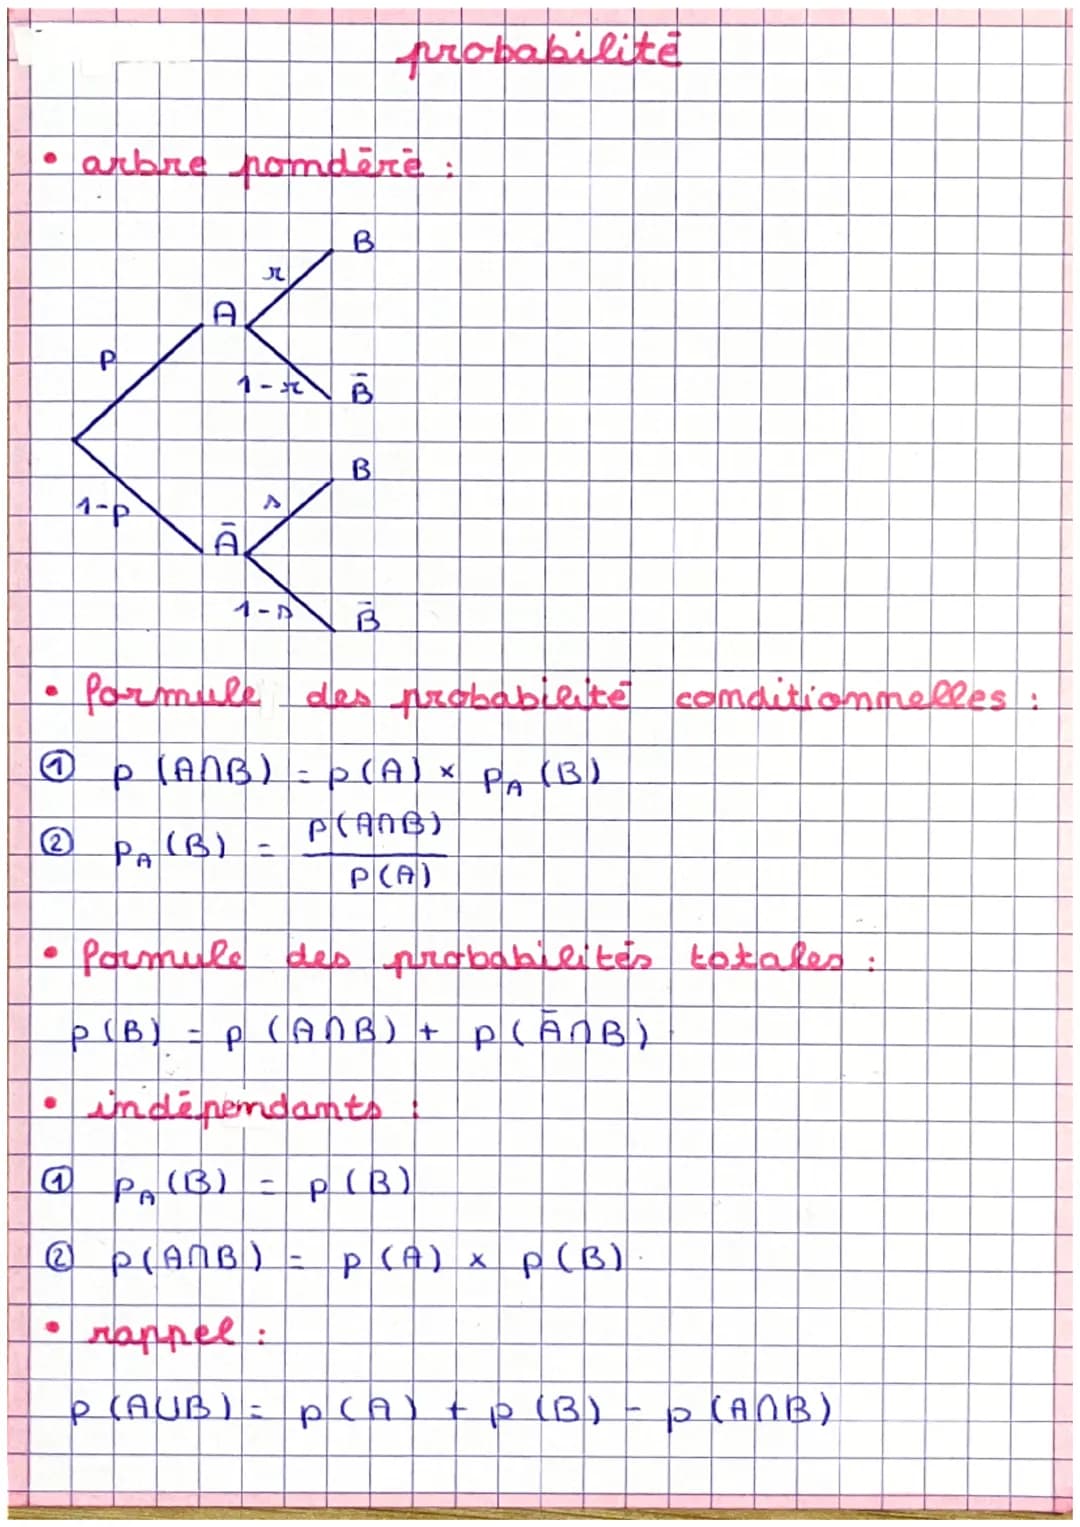 probabilité
• arbre pondéré :
B
r
A
p
1-r
B̄
B
1-p
s
Ā
1-s
B̄
• formule des probabilité conditionnelles :
① p (A∩B) = p(A) × p_A (B)
② p_A (B) = p(A∩B) / p(A)
• formule des probabilités totales :
p(B) = p (A∩B) + p(Ā∩B)
• indépendants :
① p_A (B) = p (B)
② p(A∩B) = p (A) × p (B).
• rappel :
p (A∪B) = p (A) + p (B) - p (A∩B)